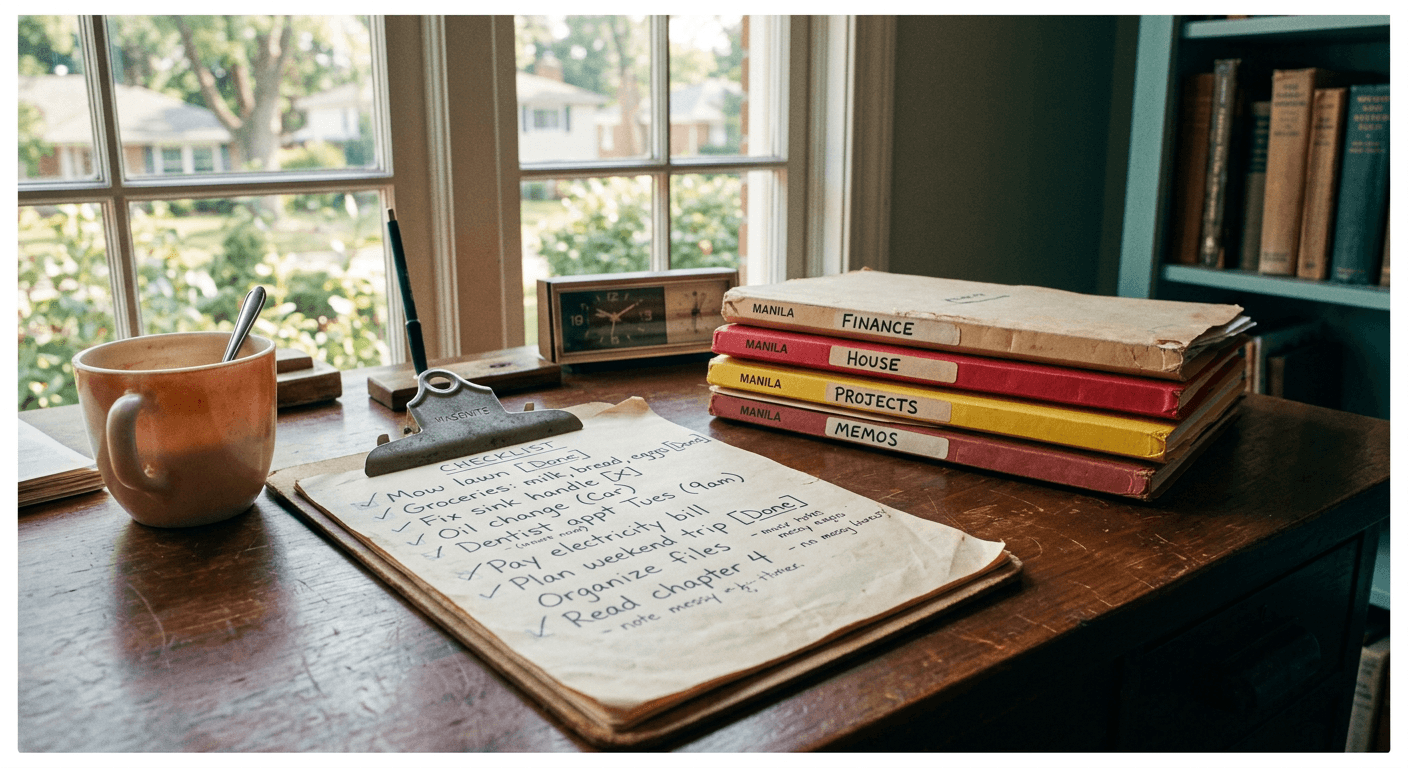 MASENITE
CHECKLIST
✓ Mow lawn [Done]
✓ Groceries: milk, bread, eggs [Done]
✓ Fix sink handle [X]
✓ Oil change (Car)
✓ Dentist appt Tues (9am)
✓ Pay electricity bill
✓ Plan weekend trip [Done]
Organize files
✓ Read chapter 4
- note messy
- no messy
MANILA FINANCE
MANILA HOUSE
MANILA PROJECTS
MANILA MEMOS